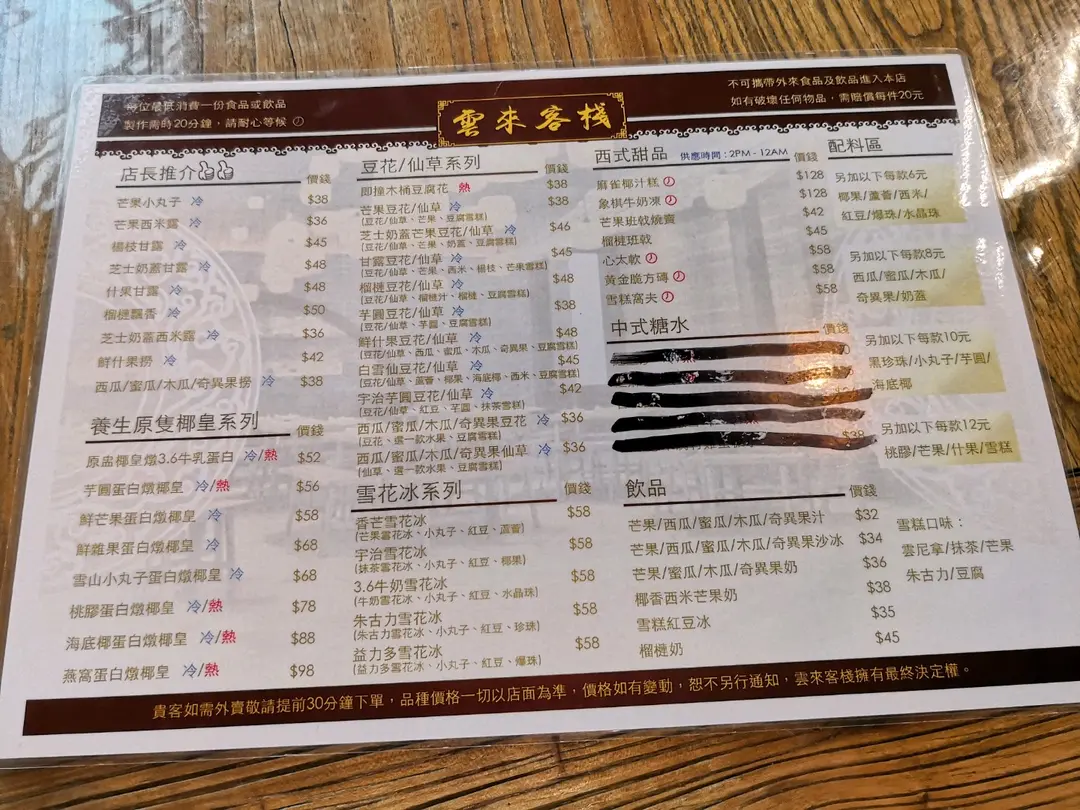 每位最低消費一份食品或飲品
製作需時20分鐘，請耐心等候
雲來客棧
不可攜帶外來食品及飲品進入本店
如有破壞任何物品，需賠償每件20元
店長推介 價錢
芒果小丸子 冷 $38
芒果西米露 冷 $36
楊枝甘露 冷 $45
芝士奶蓋甘露 冷 $48
什果甘露 冷 $48
榴槤飄香 冷 $50
芝士奶蓋西米露 冷 $36
鮮什果撈 冷 $42
西瓜/蜜瓜/木瓜/奇異果撈 冷 $38
養生原隻椰皇系列 價錢
原盅椰皇燉3.6牛乳蛋白 冷/熱 $52
芋圓蛋白燉椰皇 冷/熱 $56
鮮芒果蛋白燉椰皇 冷 $58
鮮雜果蛋白燉椰皇 冷 $68
雪山小丸子蛋白燉椰皇 冷 $68
桃膠蛋白燉椰皇 冷/熱 $78
海底椰蛋白燉椰皇 冷/熱 $88
燕窩蛋白燉椰皇 冷/熱 $98
豆花/仙草系列 價錢
即撞木桶豆腐花 熱 $38
芒果豆花/仙草 冷 $38
(豆花/仙草、芒果、豆腐雪糕)
芝士奶蓋芒果豆花/仙草 冷 $46
(豆花/仙草、芒果、奶蓋、豆腐雪糕)
甘露豆花/仙草 冷 $45
(豆花/仙草、芒果、西米、楊枝、芒果雪糕)
榴槤豆花/仙草 冷 $48
(豆花/仙草、榴槤汁、榴槤、豆腐雪糕)
芋圓豆花/仙草 冷 $38
(豆花/仙草、芋圓、豆腐雪糕)
鮮什果豆花/仙草 冷 $48
(豆花/仙草、西瓜、蜜瓜、木瓜、奇異果、豆腐雪糕)
白雪仙豆花/仙草 冷 $45
(豆花/仙草、蘆薈、椰果、海底椰、西米、豆腐雪糕)
宇治芋圓豆花/仙草 冷 $42
(豆花/仙草、紅豆、芋圓、抹茶雪糕)
西瓜/蜜瓜/木瓜/奇異果豆花 冷 $36
(豆花、選一款水果、豆腐雪糕)
西瓜/蜜瓜/木瓜/奇異果仙草 冷 $36
(仙草、選一款水果、豆腐雪糕)
雪花冰系列 價錢
香芒雪花冰 $58
(芒果雪花冰、小丸子、紅豆、蘆薈)
宇治雪花冰 $58
(抹茶雪花冰、小丸子、紅豆、椰果)
3.6牛奶雪花冰 $58
(牛奶雪花冰、小丸子、紅豆、水晶珠)
朱古力雪花冰 $58
(朱古力雪花冰、小丸子、紅豆、珍珠)
益力多雪花冰 $58
(益力多雪花冰、小丸子、紅豆、爆珠)
西式甜品 供應時間：2PM - 12AM 價錢
麻雀椰汁糕 $128
象棋牛奶凍 $128
芒果班戟燒賣 $42
榴槤班戟 $45
心太軟 $58
黃金脆方磚 $58
雪糕窩夫 $58
中式糖水 價錢
飲品 價錢
芒果/西瓜/蜜瓜/木瓜/奇異果汁 $32
芒果/西瓜/蜜瓜/木瓜/奇異果沙冰 $34
芒果/蜜瓜/木瓜/奇異果奶 $36
椰香西米芒果奶 $38
雪糕紅豆冰 $35
榴槤奶 $45
配料區
另加以下每款6元
椰果/蘆薈/西米/
紅豆/爆珠/水晶珠
另加以下每款8元
西瓜/蜜瓜/木瓜/
奇異果/奶蓋
另加以下每款10元
黑珍珠/小丸子/芋圓/
海底椰
另加以下每款12元
桃膠/芒果/什果/雪糕
雪糕口味：
雲尼拿/抹茶/芒果
朱古力/豆腐
貴客如需外賣敬請提前30分鐘下單，品種價格一切以店面為準，價格如有變動，恕不另行通知，雲來客棧擁有最終決定權。